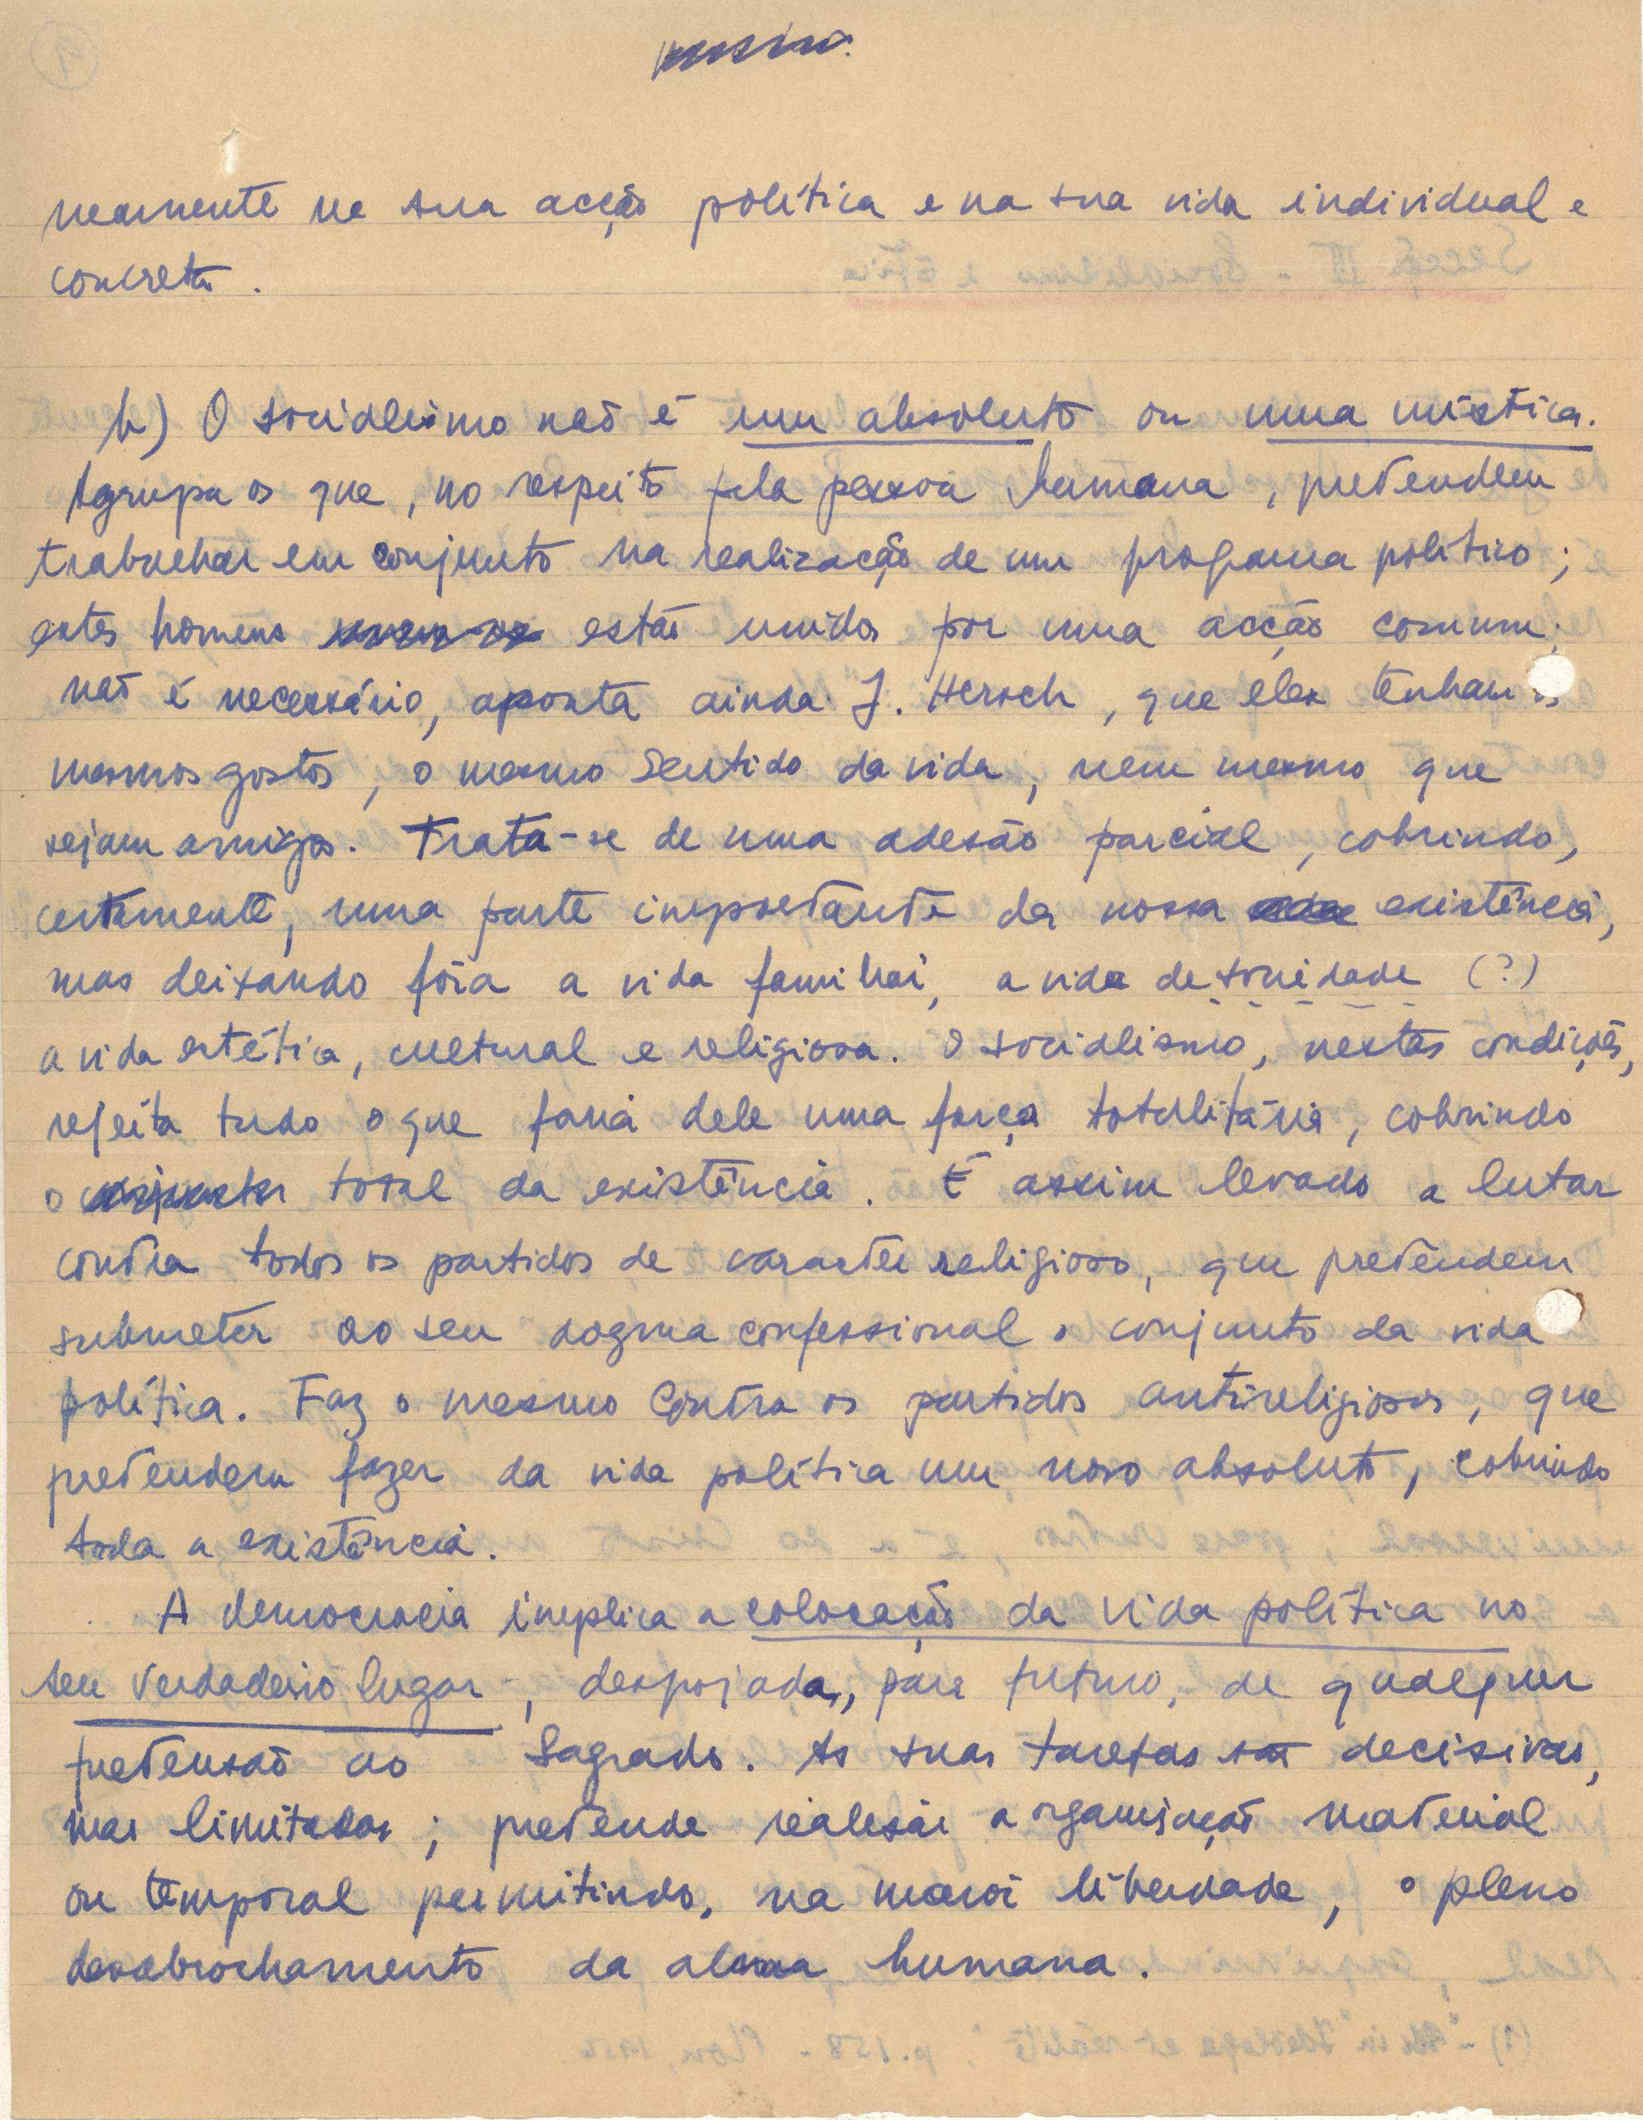 neamente na sua acção política e na sua vida individual e
concreta.
b) O socialismo não é um absoluto ou uma mística.
Agrupa os que, no respeito pela pessoa humana, pretendem
trabalhar em conjunto na realização de um programa político;
estes homens estão unidos por uma acção comum;
não é necessário, aponta ainda J. Hersch, que eles tenham os
mesmos gostos, o mesmo sentido da vida, nem mesmo que
sejam amigos. Trata-se de uma adesão parcial, cobrindo,
certamente, uma parte importante da nossa existência,
mas deixando fóra a vida familiar, a vida de sociedade (?)
a vida estética, cultural e religiosa. O socialismo, nestas condições,
rejeita tudo o que faria dele uma força totalitária, cobrindo
o conjunto total da existência. É assim levado a lutar
contra todos os partidos de caracter religioso, que pretendem
submeter ao seu dogma confessional o conjunto da vida
política. Faz o mesmo contra os partidos antireligiosos, que
pretendem fazer da vida política um novo absoluto, cobrindo
toda a existência.
A democracia implica a colocação da vida política no
seu verdadeiro lugar, despojada, para futuro, de qualquer
pretensão ao Sagrado. As suas tarefas são decisivas,
mas limitadas; pretende realisar a organisação material
ou temporal permitindo, na maior liberdade, o pleno
desabrochamento da alma humana.